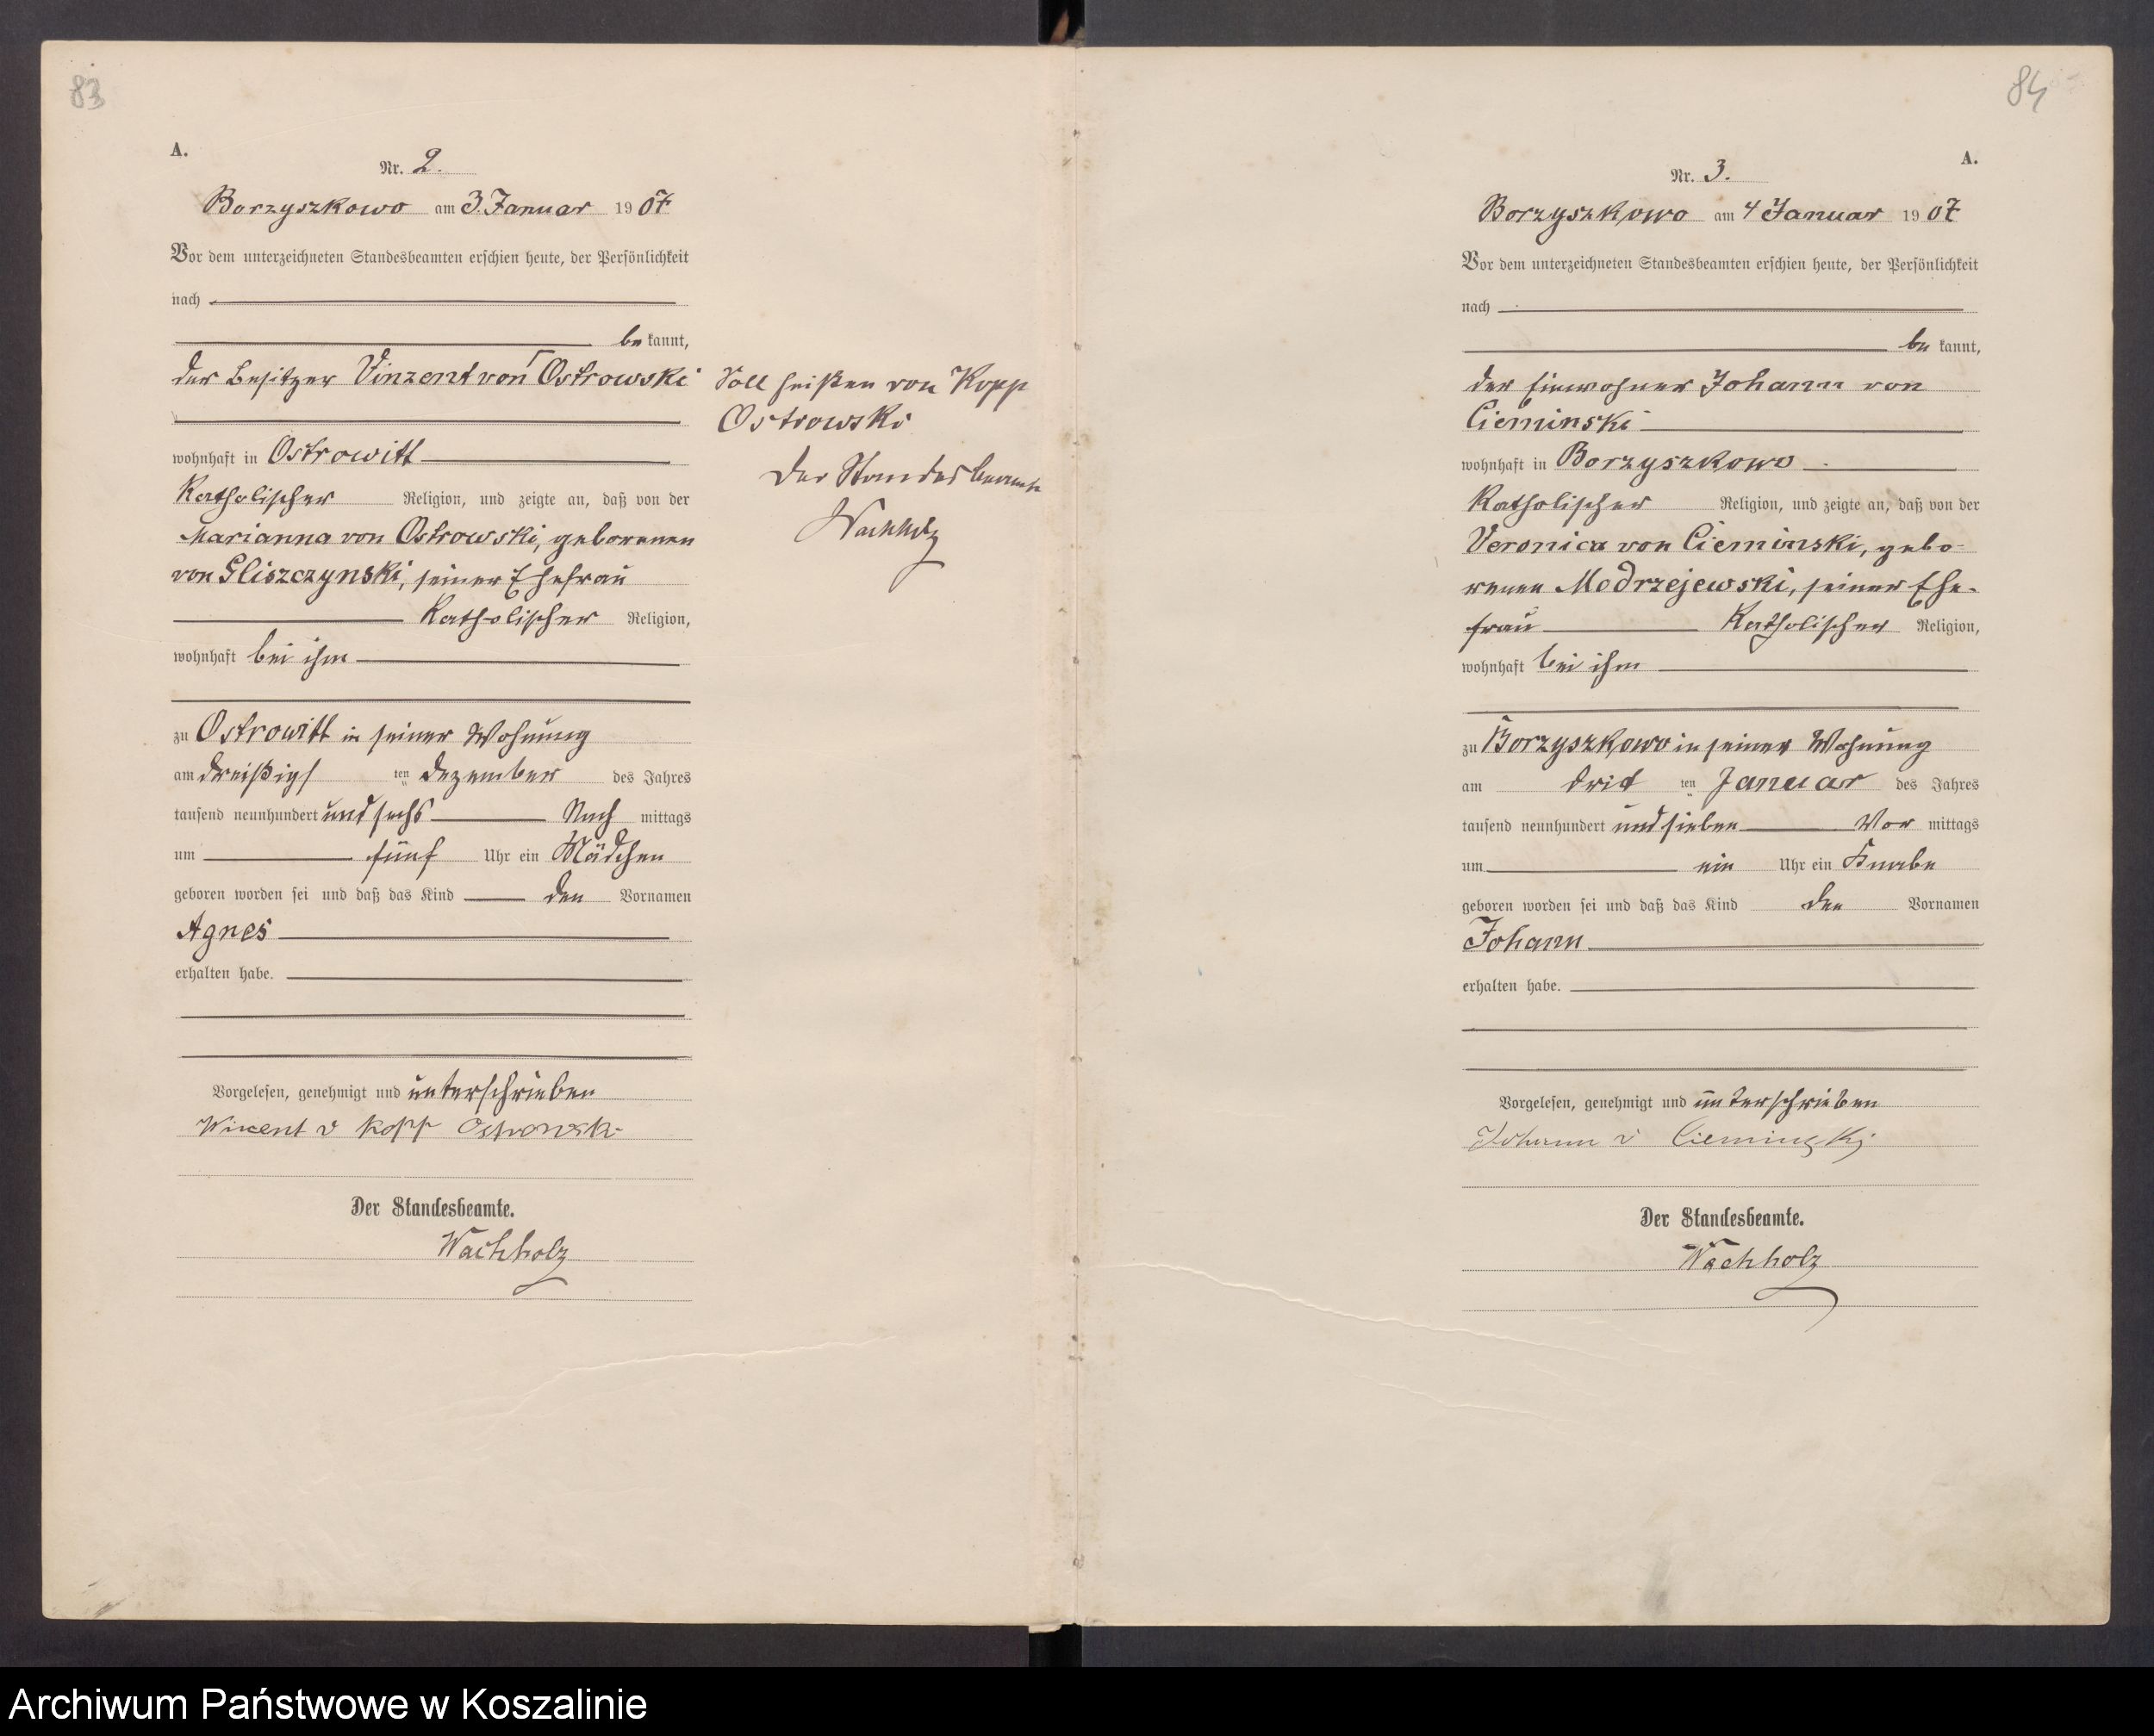 83
A.
Nr. 2.
Borzyszkowo am 3. Januar 1907
Vor dem unterzeichneten Standesbeamten erschien heute, der Persönlichkeit
nach
be kannt,
der Besitzer Vinzent von Ostrowski
wohnhaft in Ostrowitt
Katholischer Religion, und zeigte an, daß von der
Marianna von Ostrowski, geborenen
von Gliszczynski, seiner Ehefrau
Katholischer Religion,
wohnhaft bei ihm
zu Ostrowitt in seiner Wohnung
am dreißigsten Dezember des Jahres
tausend neunhundert und sechs Nach mittags
um fünf Uhr ein Mädchen
geboren worden sei und daß das Kind den Vornamen
Agnes
erhalten habe.
Vorgelesen, genehmigt und unterschrieben
Wincent v Kopp Ostrowski
Der Standesbeamte.
Wachholz
Soll heißen von Kopp
Ostrowski
Der Standesbeamte
Wachholz
84
A.
Nr. 3.
Borzyszkowo am 4 Januar 1907
Vor dem unterzeichneten Standesbeamten erschien heute, der Persönlichkeit
nach
be kannt,
der Einwohner Johann von
Cieminski
wohnhaft in Borzyszkowo
Katholischer Religion, und zeigte an, daß von der
Veronica von Cieminski, gebo-
renen Modrzejewski, seiner Ehe-
frau Katholischer Religion,
wohnhaft bei ihm
zu Borzyszkowo in seiner Wohnung
am dritten Januar des Jahres
tausend neunhundert und sieben Vor mittags
um ein Uhr ein Knabe
geboren worden sei und daß das Kind den Vornamen
Johann
erhalten habe.
Vorgelesen, genehmigt und unterschrieben
Johann v Cieminski
Der Standesbeamte.
Wachholz
Archiwum Państwowe w Koszalinie